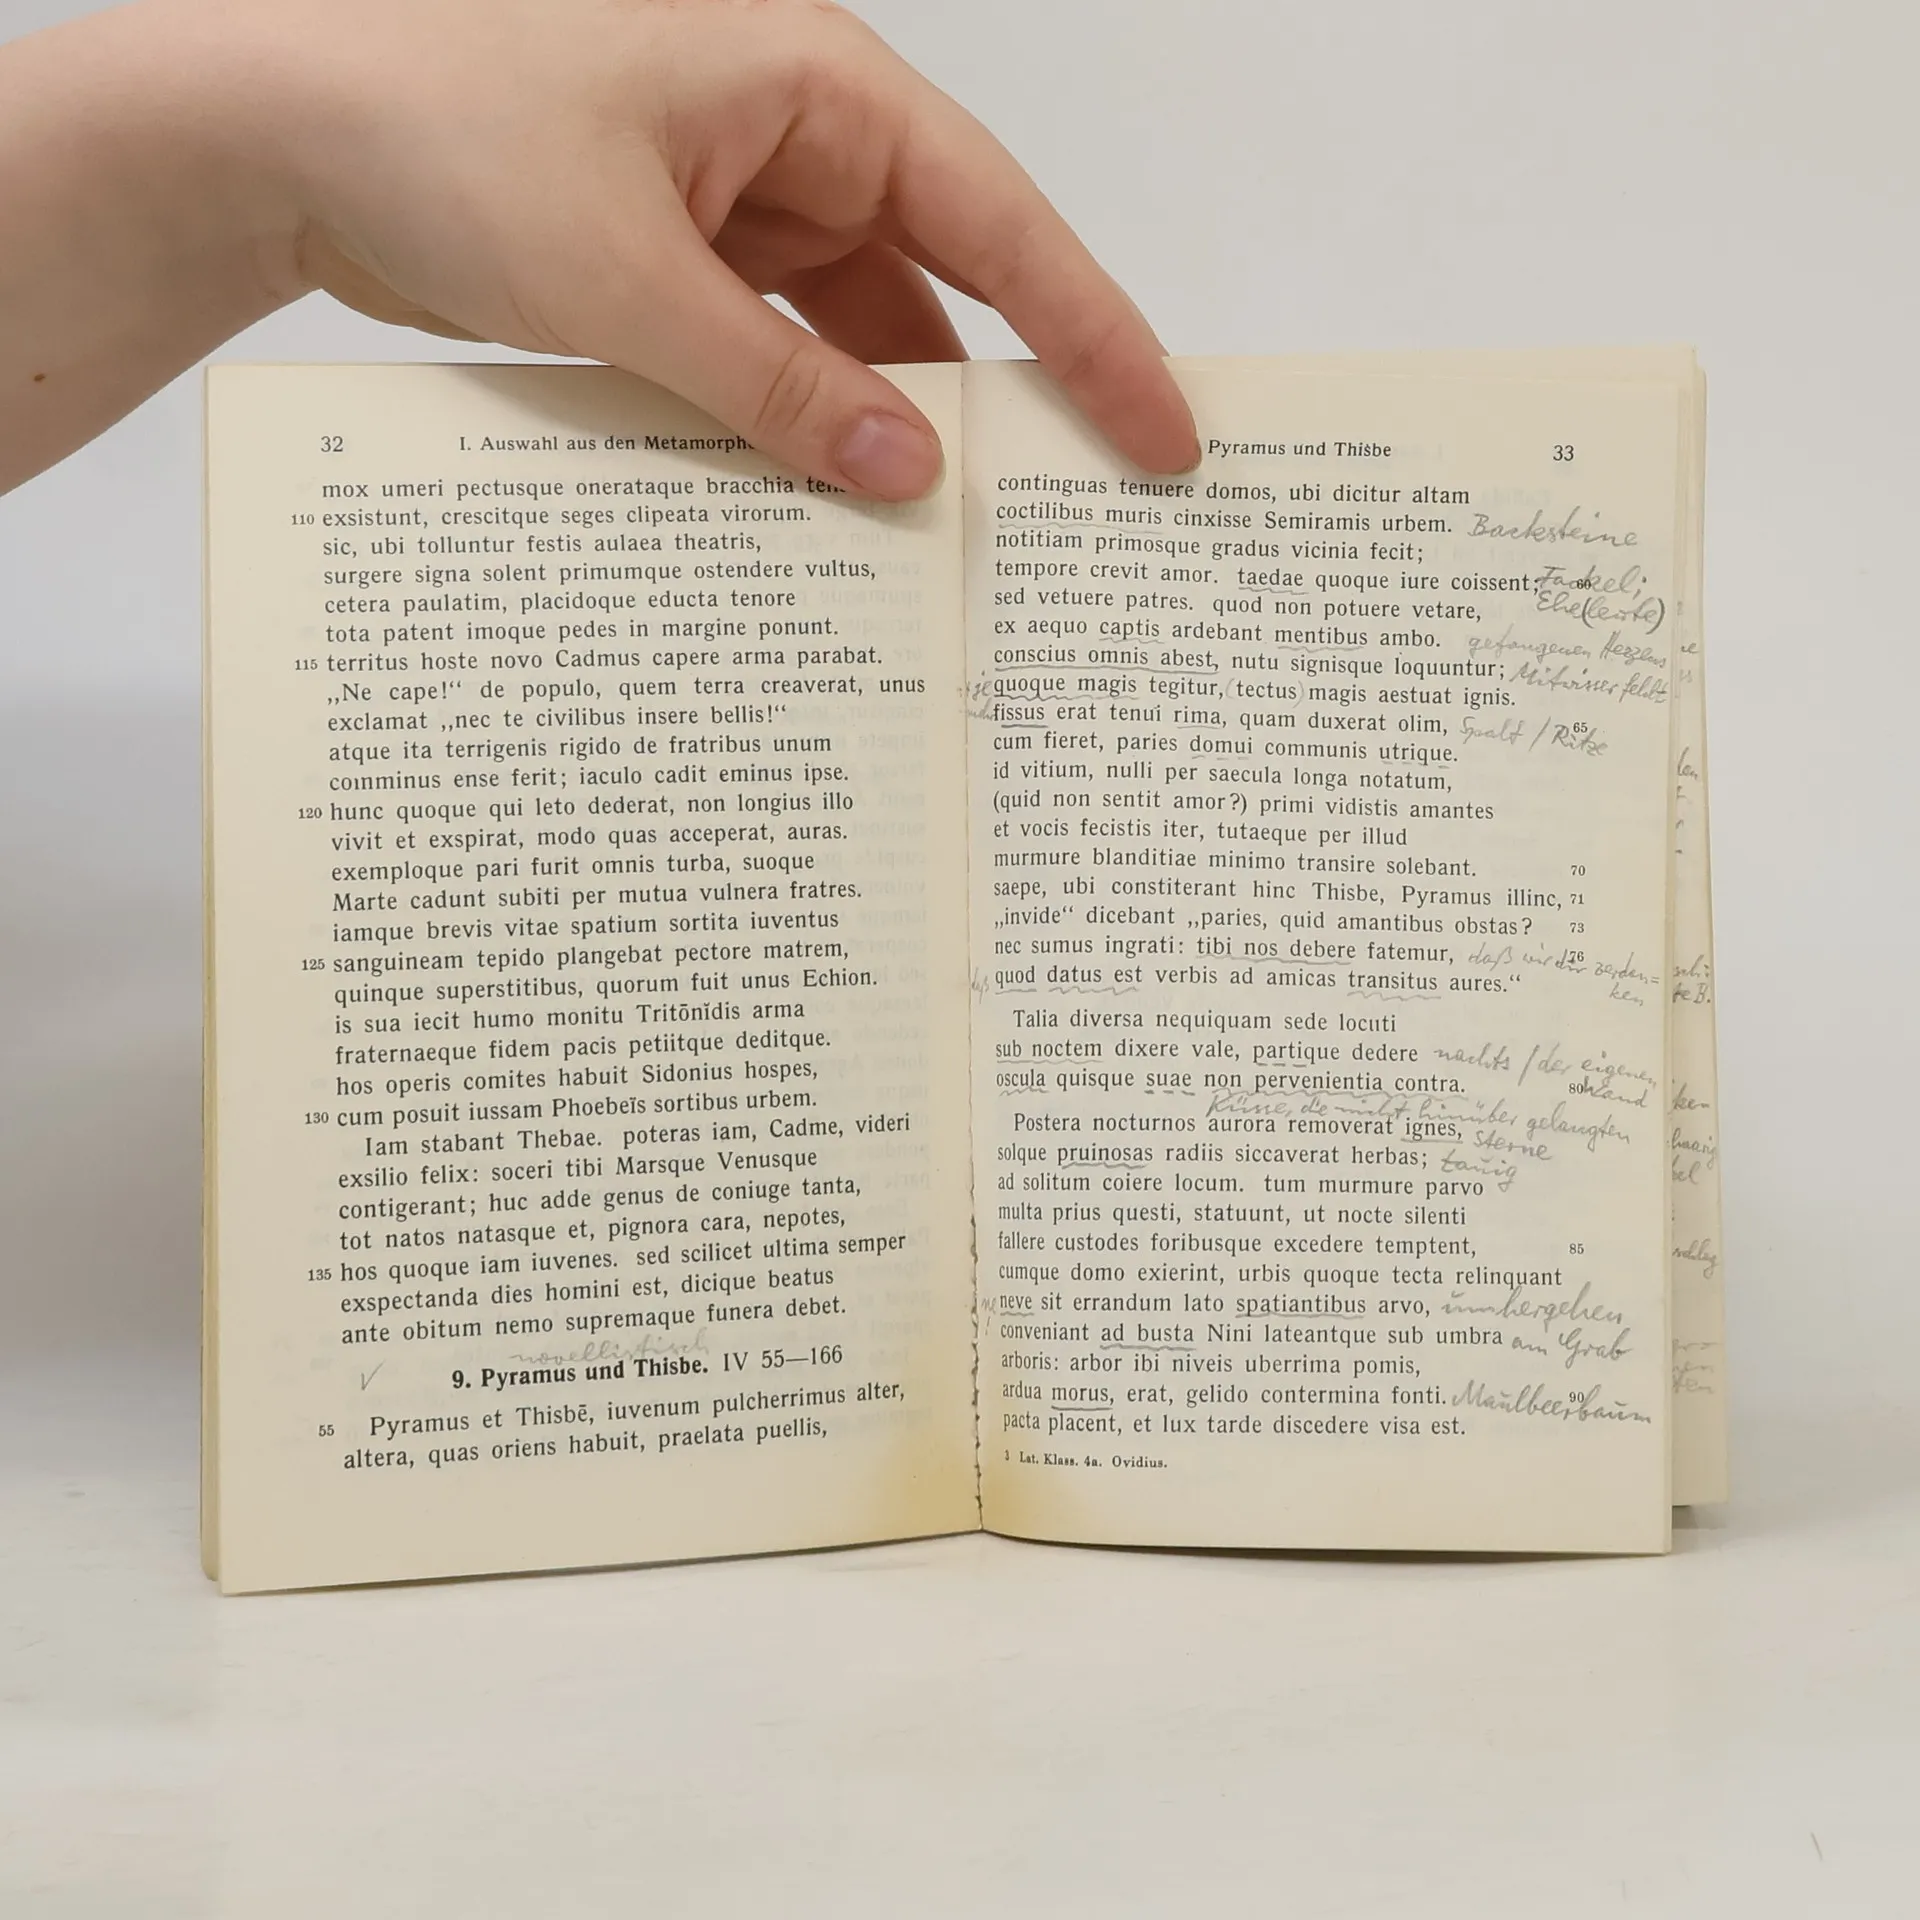 32
I. Auswahl aus den
mox umeri pectusque onerataque bracchia
110 exsistunt, crescitque seges clipeata virorum.
sic, ubi tolluntur festis aulaea theatris,
surgere signa solent primumque ostendere vultus,
cetera paulatim, placidoque educta tenore
tota patent imoque pedes in margine ponunt.
115 territus hoste novo Cadmus capere arma parabat.
„Ne cape!“ de populo, quem terra creaverat, unus
exclamat „nec te civilibus insere bellis!“
atque ita terrigenis rigido de fratribus unum
comminus ense ferit; iaculo cadit eminus ipse.
120 hunc quoque qui leto dederat, non longius illo
vivit et exspirat, modo quas acceperat, auras.
exemploque pari furit omnis turba, suoque
Marte cadunt subiti per mutua vulnera fratres.
iamque brevis vitae spatium sortita iuventus
125 sanguineam tepido plangebat pectore matrem,
quinque superstitibus, quorum fuit unus Echion.
is sua iecit humo monitu Tritōnĭdis arma
fraternaeque fidem pacis petiitque deditque.
hos operis comites habuit Sidonius hospes,
130 cum posuit iussam Phoebeïs sortibus urbem.
Iam stabant Thebae. poteras iam, Cadme, videri
exsilio felix: soceri tibi Marsque Venusque
contigerant; huc adde genus de coniuge tanta,
tot natos natasque et, pignora cara, nepotes,
135 hos quoque iam iuvenes. sed scilicet ultima semper
exspectanda dies homini est, dicique beatus
ante obitum nemo supremaque funera debet.
novellistisch
9. Pyramus und Thisbe. IV 55—166
55 Pyramus et Thisbē, iuvenum pulcherrimus alter,
altera, quas oriens habuit, praelata puellis,
Pyramus und Thisbe
33
continguas tenuere domos, ubi dicitur altam
coctilibus muris cinxisse Semiramis urbem. Backsteine
notitiam primosque gradus vicinia fecit;
tempore crevit amor. taedae quoque iure coissent; 60 Fackel;
sed vetuere patres. quod non potuere vetare, Ehe(leute)
ex aequo captis ardebant mentibus ambo. gefangenen Herzens
conscius omnis abest, nutu signisque loquuntur; Mitwisser fehlt
je quoque magis tegitur, (tectus) magis aestuat ignis.
fissus erat tenui rima, quam duxerat olim, 65 Spalt / Ritze
cum fieret, paries domui communis utrique.
id vitium, nulli per saecula longa notatum,
(quid non sentit amor?) primi vidistis amantes
et vocis fecistis iter, tutaeque per illud
murmure blanditiae minimo transire solebant. 70
saepe, ubi constiterant hinc Thisbe, Pyramus illinc, 71
„invide“ dicebant „paries, quid amantibus obstas? 73
nec sumus ingrati: tibi nos debere fatemur, 76 daß wir dir verdan=
ken
daß quod datus est verbis ad amicas transitus aures.“
Talia diversa nequiquam sede locuti
sub noctem dixere vale, partique dedere nachts / der eigenen
oscula quisque suae non pervenientia contra. 80 Wand
Küsse, die nicht hinüber gelangten
Postera nocturnos aurora removerat ignes, Sterne
solque pruinosas radiis siccaverat herbas; tauig
ad solitum coiere locum. tum murmure parvo
multa prius questi, statuunt, ut nocte silenti
fallere custodes foribusque excedere temptent, 85
cumque domo exierint, urbis quoque tecta relinquant
neve sit errandum lato spatiantibus arvo, umhergehen
conveniant ad busta Nini lateantque sub umbra am Grab
arboris: arbor ibi niveis uberrima pomis,
ardua morus, erat, gelido contermina fonti. 90 Maulbeerbaum
pacta placent, et lux tarde discedere visa est.
3 Lat. Klass. 4a. Ovidius.